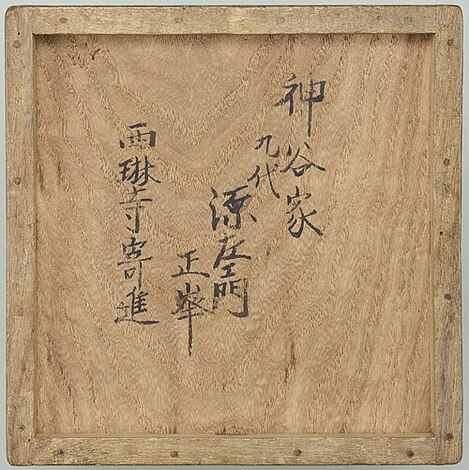 神谷家
九代
源左エ門
正峯
西琳寺寄進